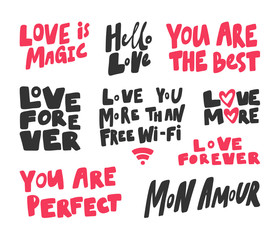 LOVE iS
MAGiC
Hello
Love
YOU ARE
THE BEST
LOVE
FORE
VER
LOVE YOU
MORE THAN
FREE Wi-Fi
LOVE
MORE
LOVE
FOREVER
YOU ARE
PERFECT
MON AMOUR